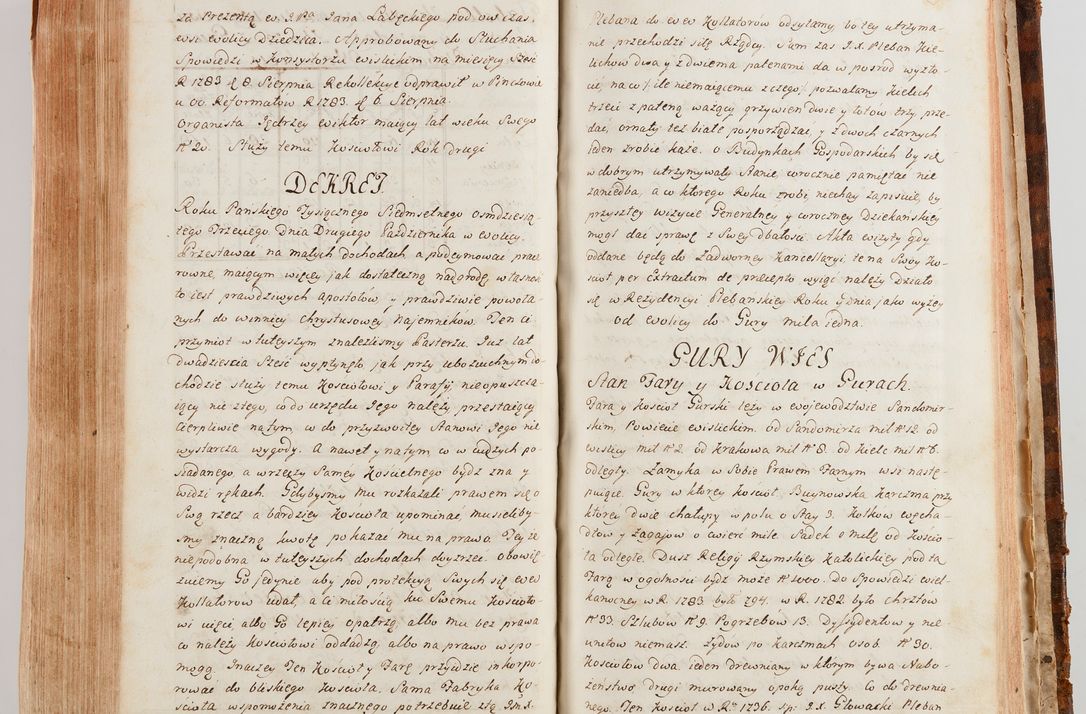 za Prezentą ew. JPa Jana Łabęckiego pod ow czas
wsi ewolicy Dziedzica. Approbowany do Słuchania
Spowiedzi w konsystorzu wislickim na miesięcy Sześć
R 1783 d 8. Sierpnia Rekollekcye odprawił w Pinczowie
u oo. Reformatów R 1783. d 6. Sierpnia.
Organista Jędrzey ewiktor maiący lat wieku Swego
N 20. Służy temu Kosciołowi Rok drugi
DEKRET
Roku Pańskiego Tysiącznego Siedmsetnego osmdziesią-
tego Trzeciego Dnia Drugiego Października w ewolicy.
Przestawać na małych dochodach a podeymować prace
rowne maiącym więcey jak dostateczną nadgrodę, własność
to iest prawdziwych apostołów y prawdziwie powoła-
nych do winnicy chrystusowey najemników. Ten ci
przymiot w tuteyszym znalezlismy Pasterzu. Już lat
dwadzieścia Sześć wypłynęło jak przy ubozuchnym do-
chodzie służy temu Kosciołowi y Parafij nieopuszcza-
iący nic złego, co do urzędu Jego należy przestaiący
cierpliwie na tym, co do przyzwoitey Stanowi Jego nie
wystarcza wygody. A nawet y na tym co w cudzych po-
żadanego, a wrzęzy Samey Koscielnego bydź zna y
widzi rękach. Gdybyśmy mu rozkazali prawem się o
Swą rzecz a bardziey Kosciola upominać, musieliby-
smy znaczną kwotę pokazać mu na prawo Tey ze
niepodobna w tuteyszych dochodach doyrzeć obowię-
zuiemy Go jedynie aby pod protekcyą Swych się ewew
Kollatorow udał, a ci miłością ku Swemu Kosciolo-
wi ujęci albo Go lepiey opatrzą, albo mu bez prawa
co należy Kosciolowi oddadzą, albo na prawo wspo-
mogą. Inaczey Ten Koscioł y Farę przyidzie inkorpo-
rować do bliskiego Kosciola. Sama Fabryka Ko-
sciola wspomożenia znacznego potrzebuie złą Jmx.
Plebana do ewew Kollatorow odsyłamy, bo tey utrzyma-
nie przechodzi siłę Rządcy. Sam zas J.X. Pleban Kie-
lichow dwa y z dwiema patenami da w pośrod wyzło-
cić, na co/: ile niemaiącemu z czego:/ pozwalamy kielich
trzeci z pateną ważący grzywien dwie y łotow trzy, prze-
dać, ornaty też białe posporządzać, y z dwoch czarnych
ieden zrobić każe. o Budynkach Gospodarskich by się
w dobrym utrzymywały Stanie, corocznie pamiętać nie
zaniedba, a co ktorego Roku zrobi, niechay zapisuie, by
przyszłey wizycie Generalney y coroczney Dziekańskiey
mogł dać sprawę z Swey dbałosci. Akta wizyty gdy
oddane będą do Zadworney Kancellaryi te na Swoy Ko-
scioł per Extractum de praecepto wyiąć należy. Działo
się w Rezydencyi Plebanskiey Roku y Dnia jako wyzey
od ewolicy do Gury mila iedna.
GURY WIES
Stan Fary y Kościoła w Gurach.
Fara y Koscioł Gurski leży w ewojewodztwie Sandomir-
skim, Powiecie ewislickim. od Sandomirza mil N 12. od
ewislicy mil N 2. od Krakowa mil N 8. od Kielc mil N 6.
odległy. Zamyka w Sobie Prawem Farnym wsi nastę-
puiące. Gury w ktorey Koscioł, Bugnowska Karczma przy
ktorey dwie chałupy w polu o Stay 3. Kołkow Węcha-
dłow y Zagajow o cwierć mile. Sadek o milę od Koscio-
ła odległe. Dusz Religij Rzymskiey Katolickiey pod tą
Farą w ogolnosci bydź może N 1000. Do Spowiedzi ewiel-
kanocney w R. 1783 było 794. w R. 1782. było chrztow
N 33. Szlubow N 9. Pogrzebow 13. Dyssydentow y nie
unitow niemasz. Zydow po karczmach osob N 30.
Kosciołow dwa ieden drewniany w ktorym bywa Nabo-
żenstwo drugi murowany opoką pusty. Co do drewnia-
nego. Ten Koscioł w Ru 1736. sp: J.X. Głowacki Pleban